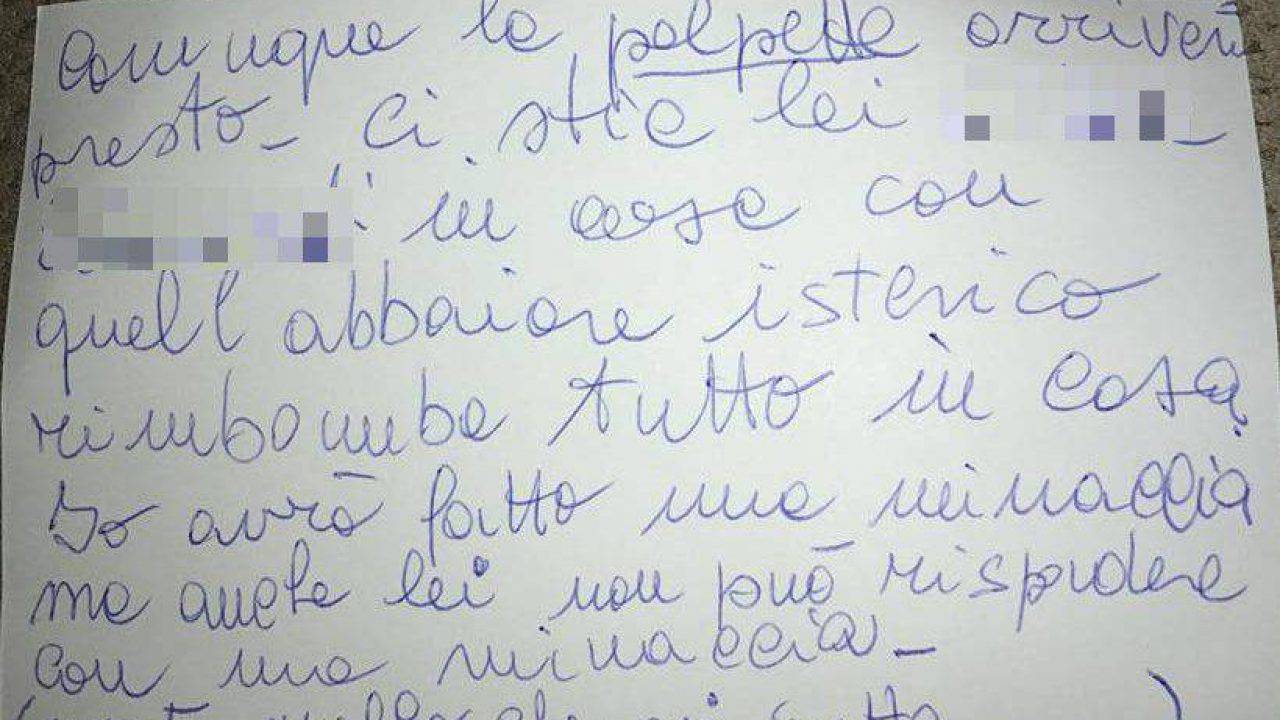 Comunque la polpetta arriverà
presto - ci stia lei
in casa con
quell abbaiare isterico
rimbomba tutto in casa
Io avrò fatto una minaccia
ma anche lei non può rispodere
con una minaccia -